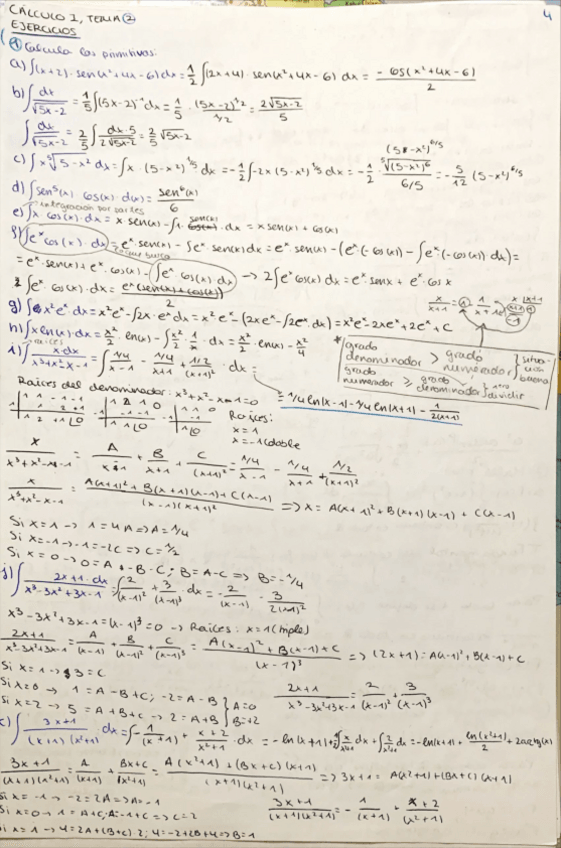 CÁLCULO I, TEMA 2
4
EJERCICIOS
1 Calcula las primitivas:
a) ∫(x+2)·sen(x²+4x-6)dx = 1/2 ∫(2x+4)·sen(x²+4x-6) dx = -cos(x²+4x-6)/2
b) ∫ dx/√(5x-2) = 1/5 ∫(5x-2)
dx = 1/5 · (5x-2)^1/2 / 1/2 = 2√(5x-2)/5
∫ dx/√(5x-2) = 2/5 ∫ dx·5/2√(5x-2) = 2/5 √(5x-2)
c) ∫x ⁵√(5-x²) dx = ∫x·(5-x²)^1/5 dx = -1/2 ∫-2x(5-x²)^1/5 dx = -1/2 · ⁵√(5-x²)⁶ / 6/5 = -5/12 (5-x²)^6/5
d) ∫sen⁵(x) cos(x)dx = sen⁶(x)/6
integración por partes
e) ∫x cos(x)dx = x·sen(x) - ∫1·sen(x)·dx = x sen(x) + cos(x)
f) ∫eˣcos(x)·dx = eˣ·sen(x) - ∫eˣ sen(x)dx = eˣ·sen(x) - (eˣ(-cos(x)) - ∫eˣ(-cos(x))dx) =
= eˣ·sen(x) + eˣ·cos(x) - ∫eˣ cos(x)dx → 2∫eˣcos(x)dx = eˣ senx + eˣ·cos x
∫eˣ·cos(x)·dx = eˣ(sen(x)+cos(x))/2
g) ∫x²eˣdx = x²eˣ - ∫2x·eˣdx = x²eˣ - (2xeˣ - ∫2eˣ·dx) = x²eˣ - 2xeˣ + 2eˣ + C
h) ∫x ln(x)·dx = x²/2 · ln(x) - ∫x²/2 · 1/x · dx = x²/2 · ln(x) - x²/4
grado denominador > grado numerador
grado numerador ≥ grado denominador
dividir
i) ∫ x·dx/(x³+x²-x-1) = ∫ 1/4/(x-1) - 1/4/(x+1) + 1/2/(x+1)² · dx =
= 1/4 ln(x-1) - 1/4 ln(x+1) - 1/2(x+1)
Raíces del denominador: x³+x²-x-1=0
Raíces:
x=1
x=-1 (doble
x/(x³+x²-x-1) = A/(x-1) + B/(x+1) + C/(x+1)² = 1/4/(x-1) - 1/4/(x+1) + 1/2/(x+1)²
x/(x³+x²-x-1) = A(x+1)²+B(x+1)(x-1)+C(x-1)/(x-1)(x+1)² => x = A(x+1)² + B(x+1)(x-1) + C(x-1)
Si x=1 → 1=4A => A=1/4
Si x=-1 → -1=-2C => C=1/2
Si x=0 → 0=A-B-C; B=A-C => B=-1/4
j) ∫ 2x+1·dx/(x³-3x²+3x-1) = ∫ 2/(x-1)² + 3/(x-1)³ dx = -2/(x-1) - 3/2(x-1)²
x³-3x²+3x-1=(x-1)³=0 → Raíces: x=1 (triple)
2x+1/(x³-3x²+3x-1) = A/(x-1) + B/(x-1)² + C/(x-1)³ = A(x-1)²+B(x-1)+C/(x-1)³ => (2x+1) = A(x-1)²+B(x-1)+C
Si x=1 → 3=C
Si x=0 → 1=A-B+C; -2=A-B } A=0
Si x=2 → 5=A+B+C → 2=A+B } B=+2
2x+1/(x³-3x²+3x-1) = 2/(x-1)² + 3/(x-1)³
∫ 3x+1/(x+1)(x²+1) dx = ∫ -1/(x+1) + x+2/(x²+1) · dx = -ln(x+1) + ∫ x/(x²+1) dx + ∫ 2/(x²+1) dx = -ln(x+1) + ln(x²+1)/2 + 2arctg(x)
3x+1/(x+1)(x²+1) = A/(x+1) + Bx+C/(x²+1) = A(x²+1)+(Bx+C)(x+1)/(x+1)(x²+1) => 3x+1 = A(x²+1)+(Bx+C)(x+1)
Si x=-1 → -2=2A => A=-1
Si x=0 → 1=A+C; A=-1 => C=2
Si x=1 → 4=2A+(B+C)2; 4=-2+2B+4 => B=1
3x+1/(x+1)(x²+1) = -1/(x+1) + x+2/(x²+1)